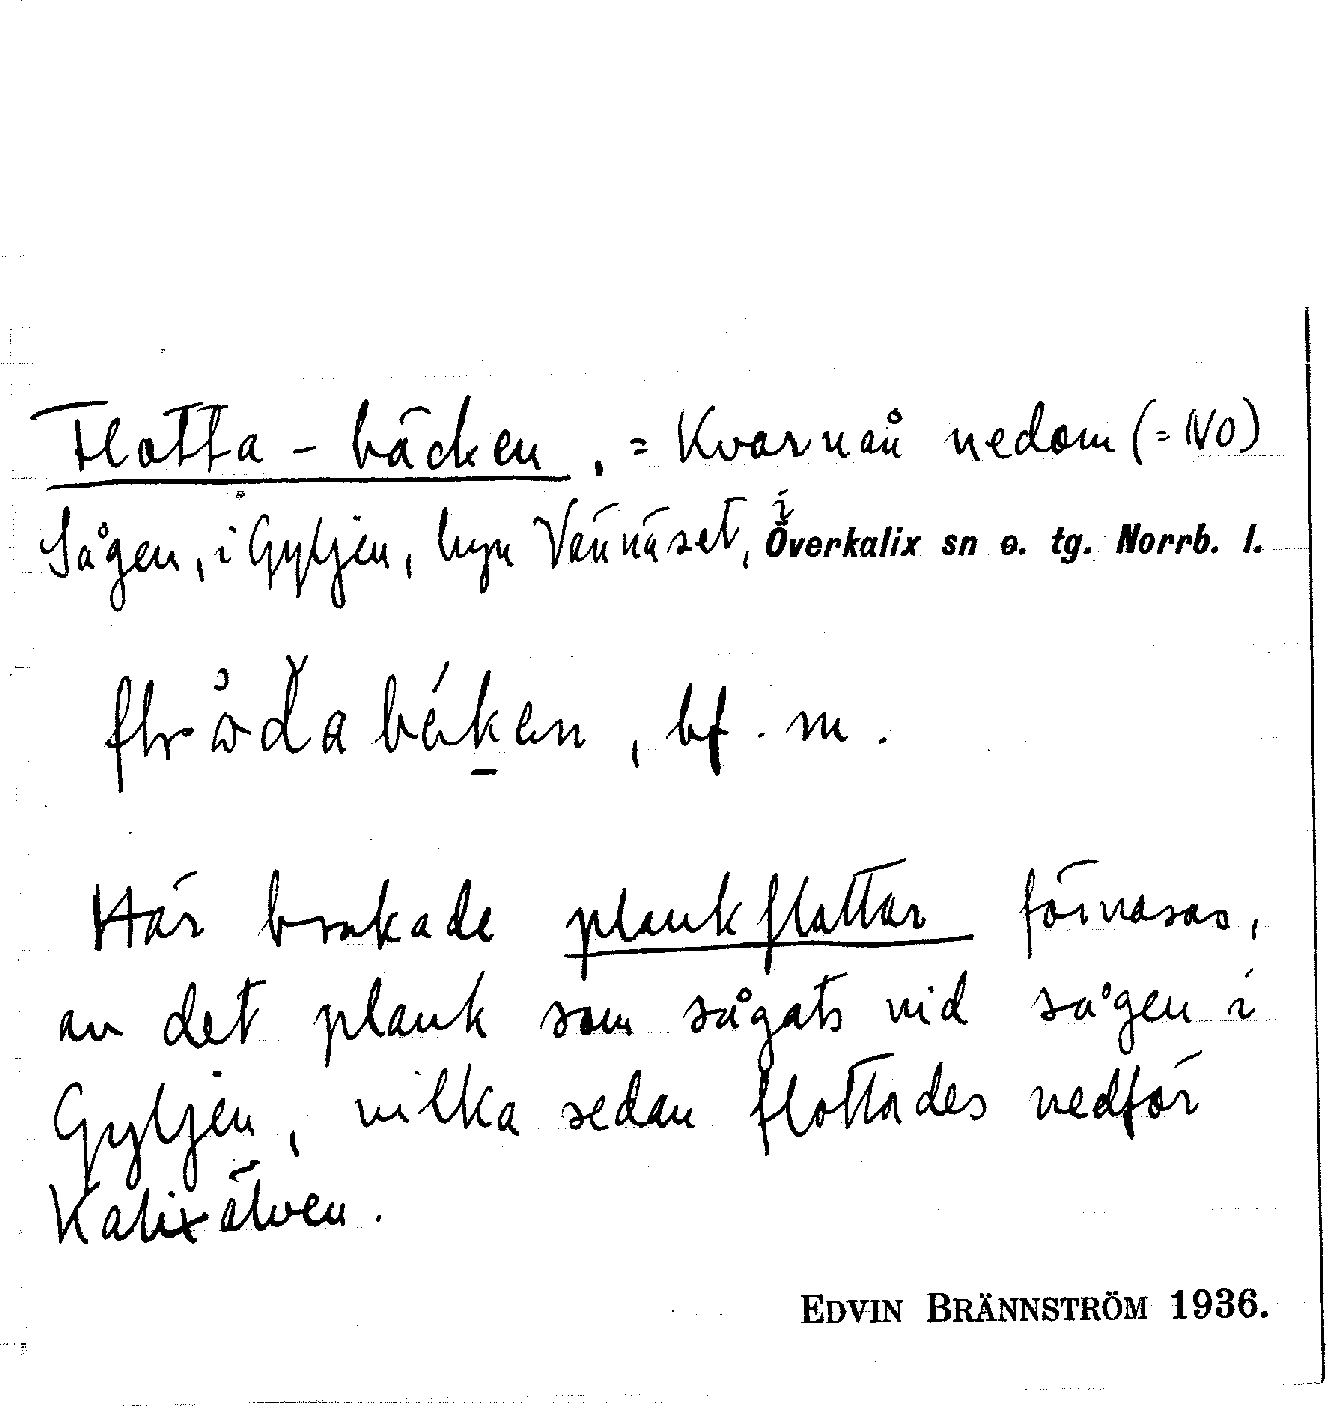 Flotta-bäcken, = Kvarnån nedom (= NO)
Sågen, i Gyljen, byn Vännäset, i Överkalix sn o. tg. Norrb. l.
bf. m.
Här brukade plankflottar förvaras,
av det plank som sågats vid sågen i
Gyljen, vilka sedan flottades nedför
Kalixälven.
EDVIN BRÄNNSTRÖM 1936.